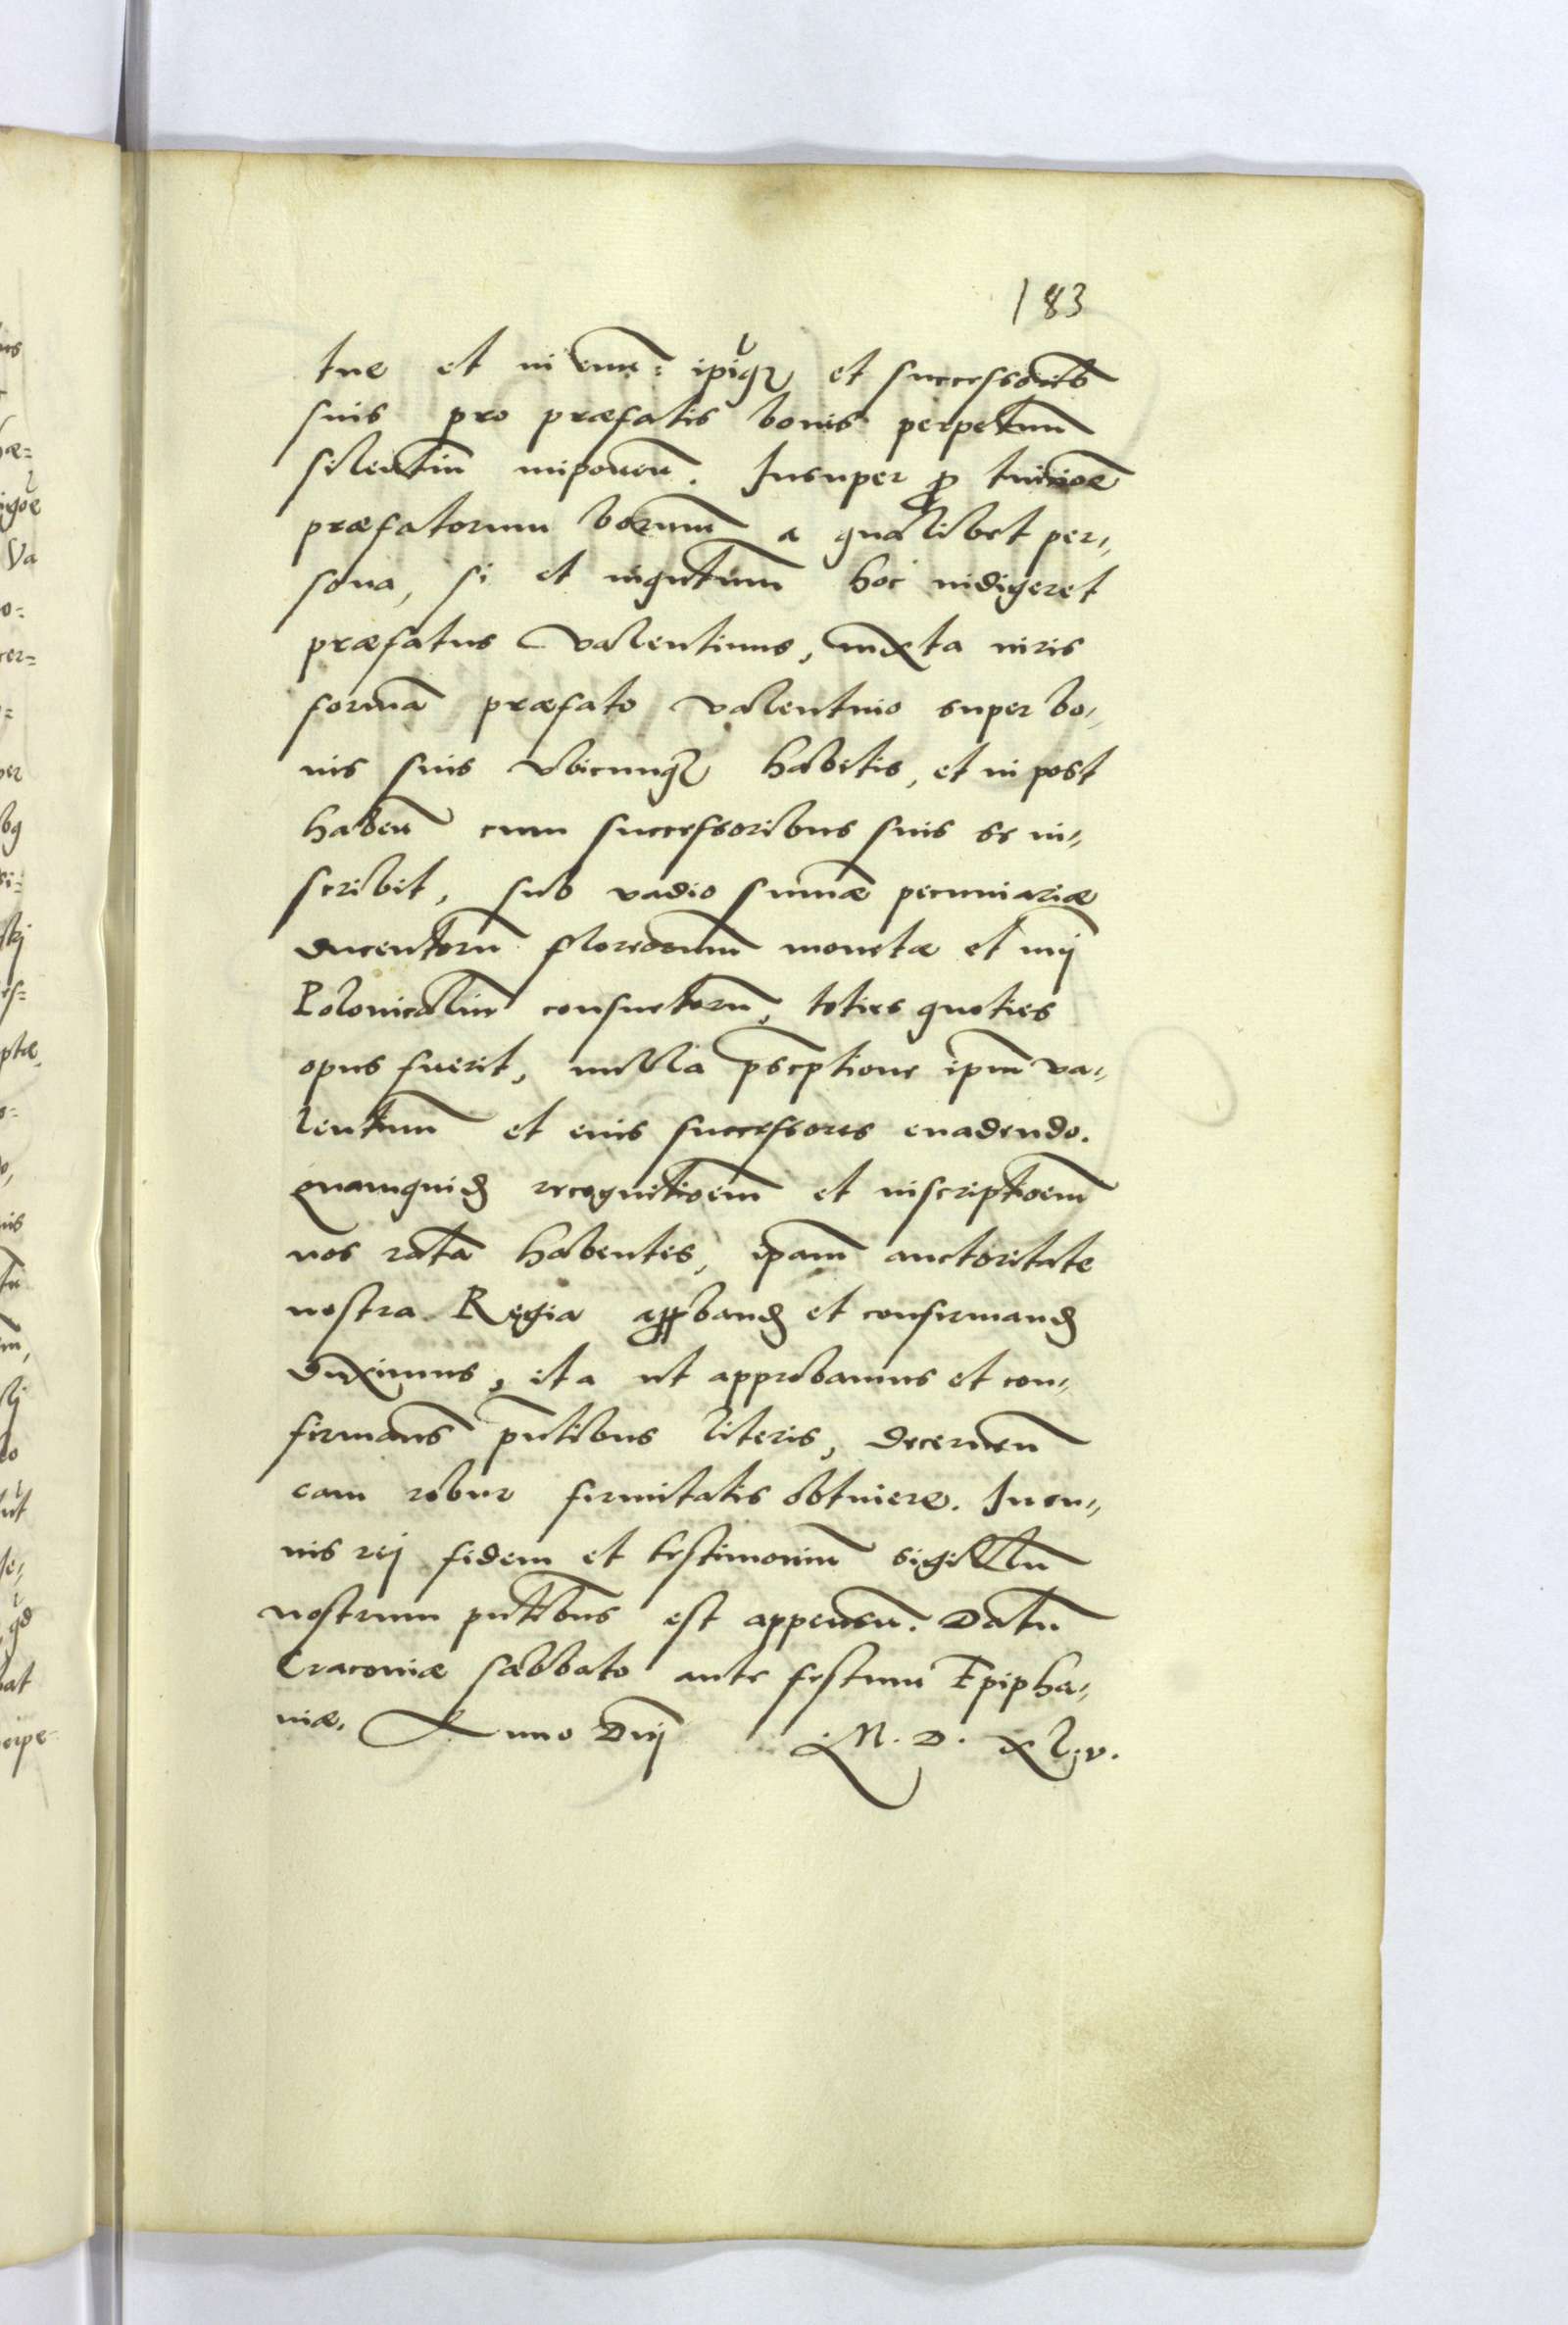 183
tue et in euum: ipiqꝫ et successorib
suis pro præfatis bonis perpetuum
silentiũ imponeñ. Insuper ꝓ tuicioẽ
præfatorum bonorum a qualibet per„
sona, si et inqntum hoc indigeret
præfatus Valentinus, iuxta iuris
formã præfato Valentino super bo„
nis suis vbicunqꝫ habitis, et in post
habeñ cum successoribus suis se in„
scribit, sub vadio sũmæ pecuniariæ
ducentorũ florenorum monetæ et nũi
Polonicaliũ consuetorũ, toties quoties
opus fuerit, nulla p̃scptione ipm̃ Va„
lentinum et eius successores euadendo.
quamquid recognitioem̃ et inscriptioem̃
nos ratã habentes, ipam̃ auctoritate
nostra Regia apꝓband et confirmand
duximus, ita ut approbamus et con„
firmams p̃ntibus literis, decerneñ
eam robur firmitatis obtinere. In cu„
ius rej fidem et testimoniũ sigillũ
nostrum pñtibus est appensũ. Datũ
Cracoviæ sabbato ante festum Epipha„
niæ. Anno Dñj M. D. xl.v.